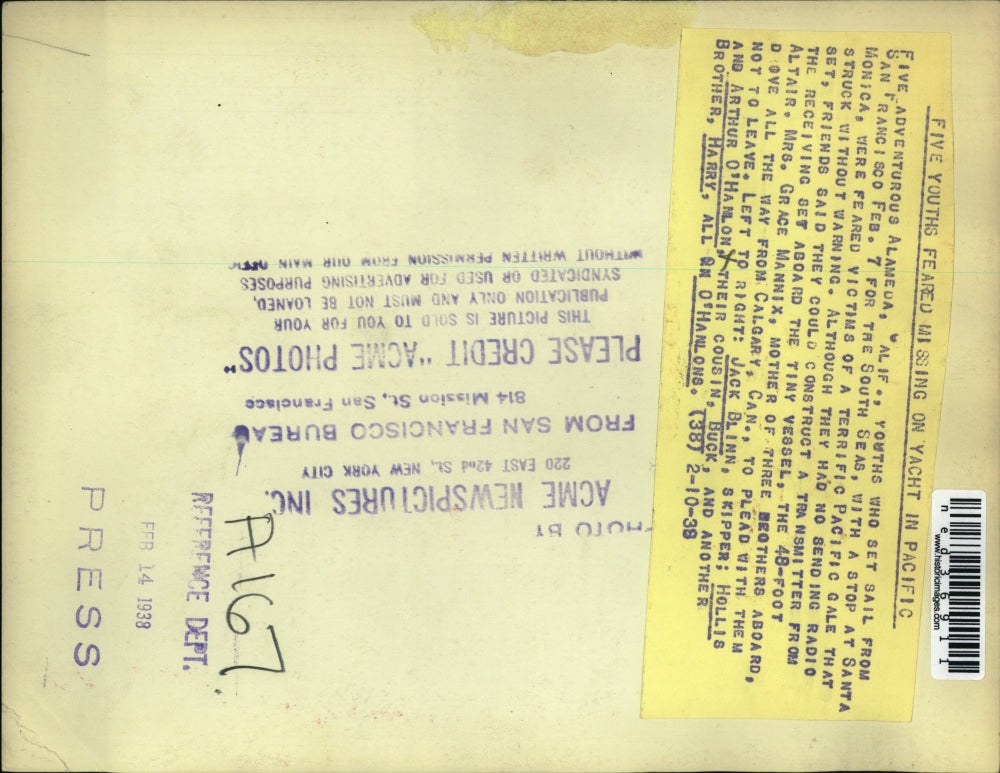 FIVE YOUTHS FEARED MISSING ON YACHT IN PACIFIC
FIVE ADVENTUROUS ALAMEDA, CALIF., YOUTHS WHO SET SAIL FROM
SAN FRANCISCO FEB. 7 FOR THE SOUTH SEAS, WITH A STOP AT SANTA
MONICA, WERE FEARED VICTIMS OF A TERRIFIC PACIFIC GALE THAT
STRUCK WITHOUT WARNING. ALTHOUGH THEY HAD NO SENDING RADIO
SET, FRIENDS SAID THEY COULD CONSTRUCT A TRANSMITTER FROM
THE RECEIVING SET ABOARD THE TINY VESSEL, THE 48-FOOT
ALTAIR. MRS. GRACE MANNIX, MOTHER OF THREE BROTHERS ABOARD,
DROVE ALL THE WAY FROM CALGARY, CAN., TO PLEAD WITH THEM
NOT TO LEAVE. LEFT TO RIGHT: JACK BLINN, SKIPPER; HOLLIS
AND ARTHUR O'HANLON, THEIR COUSIN, BUCK, AND ANOTHER
BROTHER, HARRY, ALL O'HANLONS. (387) 2-10-38
ned36911
www.historicimages.com
PHOTO BY
ACME NEWSPICTURES INC.
220 EAST 42nd St., NEW YORK CITY
FROM SAN FRANCISCO BUREAU
814 Mission St., San Francisco
PLEASE CREDIT "ACME PHOTOS"
THIS PICTURE IS SOLD TO YOU FOR YOUR
PUBLICATION ONLY AND MUST NOT BE LOANED,
SYNDICATED OR USED FOR ADVERTISING PURPOSES
WITHOUT WRITTEN PERMISSION FROM OUR MAIN OFFIC
A167
REFERENCE DEPT.
FEB 14 1938
PRESS